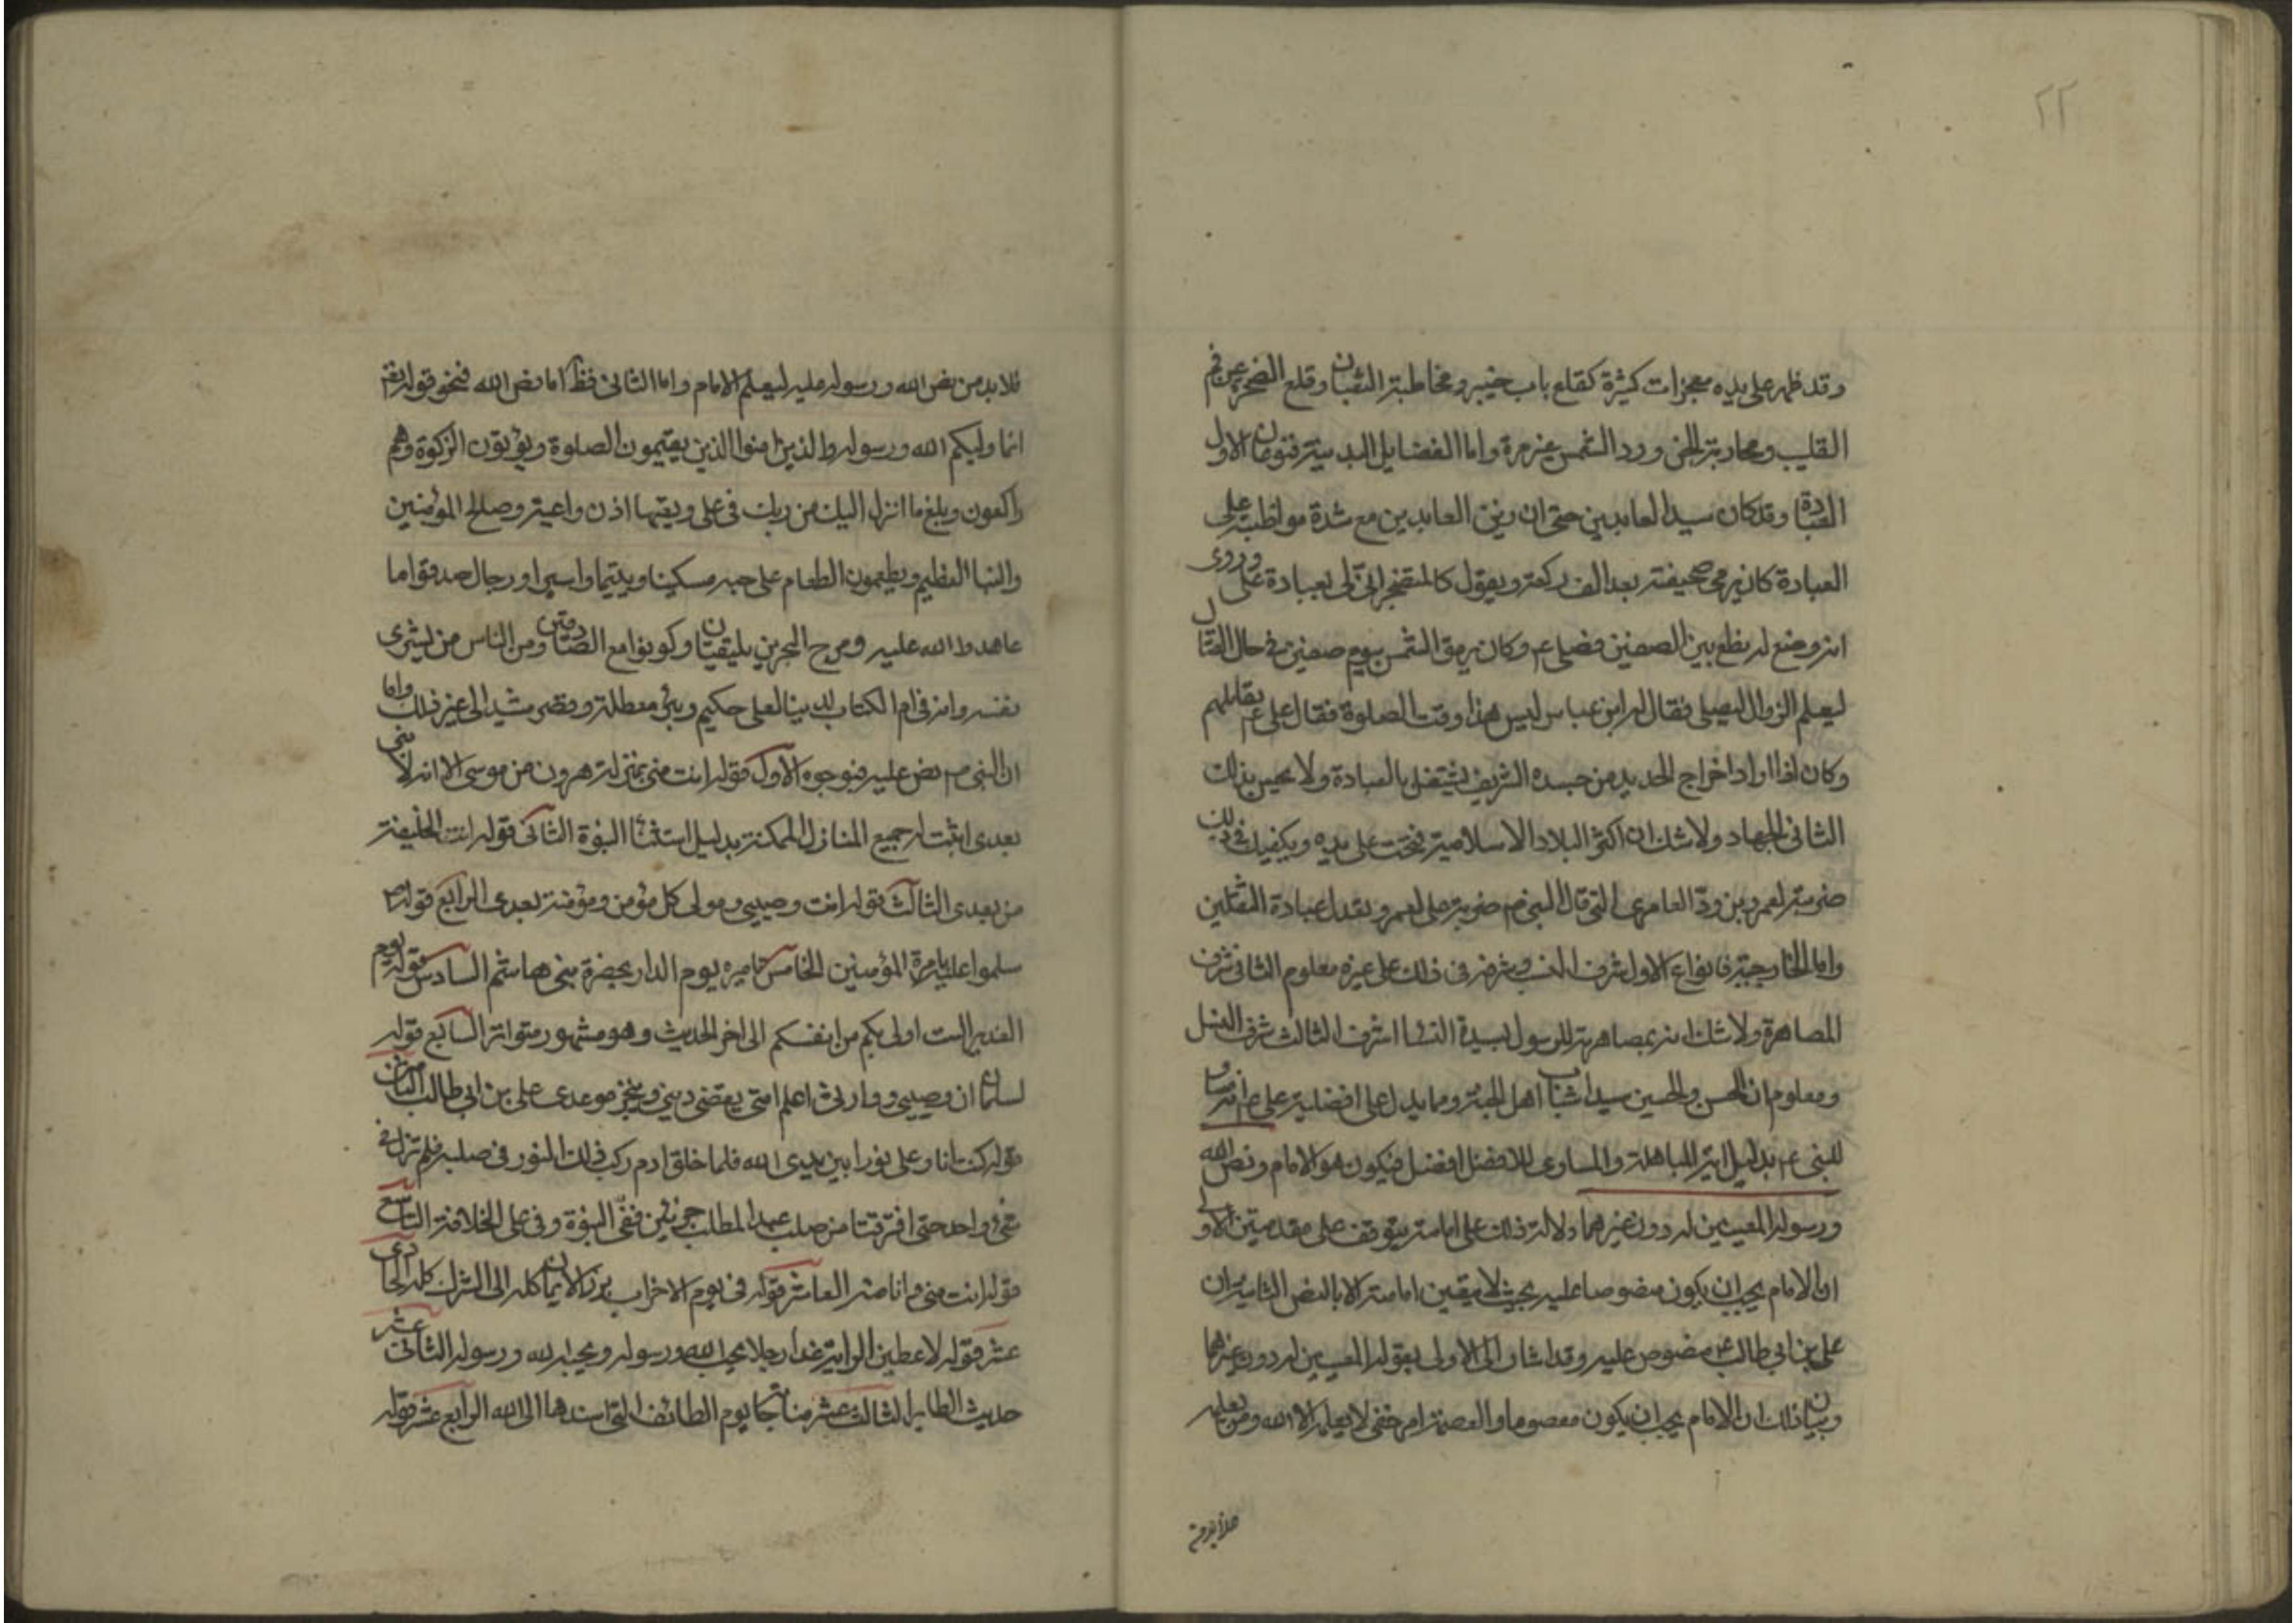 ٢٢
وقد ظهر على يده معجزات كثيرة كقلع باب خيبر ومخاطبة الثعبان وقلع الصخرة عن فم
القليب ومحاربة الجن ورد الشمس غير مرة واما الفضايل البدنية فنوعان الاول
العبادة وقد كان سيد العابدين حتى ان زين العابدين مع شدة مواظبته على
العبادة كان يرمى صحيفته بعد الف ركعة ويقول كالمتضجر انى لى بعبادة على وروى
انه وضع له نطع بين الصفين فصلى ع م وكان يرمق الشمس يوم صفين في حال القتال
ليعلم الزوال ليصلى فقال له ابن عباس ليس هذا وقت الصلوة فقال على ع م نقاتلهم
وكان اذا اراد اخراج الحديد من جسده الشريف يشتغل بالعبادة ولا يحس بذلك
الثانى الجهاد ولا شك ان اكثر البلاد الاسلامية فتحت على يده ويكفيك في ذلك
ضربته لعمرو بن ودّ العامرى التى قال النبي ص ضربة على لعمرو تعدل عبادة الثقلين
واما الخارجية فانواع الاول شرف النسب وشرفه في ذلك على غيره معلوم الثانى شرف
المصاهرة ولا شك انه بمصاهرته للرسول لسيدة النسا اشرف الثالث شرف النسل
ومعلوم ان الحسن والحسين سيدا شباب اهل الجنة ومما يدل على افضلية على ع م انه مساو
للنبى ع م بدليل اية المباهلة والمساوى للافضل افضل فيكون هو الامام ونص الله
ورسوله المعينين له دون غيرهما دلالة ذلك على امامته يتوقف على مقدمتين الاولى
ان الامام يجب ان يكون منصوصا عليه بحيث لا يتعين امامته الا بالنص الثانية ان
على بن ابى طالب ع م منصوص عليه وقد اشار الى الاولى بقوله المعينين له دون غيرهما
وبيان ذلك ان الامام يجب ان يكون معصوما والعصمة امر خفى لا يعلمه الا الله ومن يعلمه
فلا بد من
فلا بد من نص الله ورسوله عليه ليعلم الامام واما الثانى فظ اما نص الله فنحو قوله تع
انما وليكم الله ورسوله والذين امنوا الذين يقيمون الصلوة ويؤتون الزكوة وهم
راكعون وبلغ ما انزل اليك من ربك في على وتعيها اذن واعية وصالح المؤمنين
والنبا العظيم ويطعمون الطعام على حبه مسكينا ويتيما واسيرا ورجال صدقوا ما
عاهدوا الله عليه ومرج البحرين يلتقيان وكونوا مع الصادقين ومن الناس من يشرى
نفسه وانه في ام الكتاب لدينا لعلى حكيم وبئر معطلة وقصر مشيد الى غير ذلك واما
ان النبى ص نص عليه فبوجوه الاول قوله انت منى بمنزلة هرون من موسى الا انه لا نبى
بعدى اثبت له جميع المنازل الممكنة بدليل استثنا النبوة الثانى قوله انت الخليفة
من بعدى الثالث قوله انت وصيى ومولى كل مؤمن ومؤمنة بعدى الرابع قوله ص
سلموا عليه بامرة المؤمنين الخامس تاميره يوم الدار بحضرة بنى هاشم السادس قوله يوم
الغدير الست اولى بكم من انفسكم الى اخر الحديث وهو مشهور متواتر السابع قوله
لسلمان ان وصيى ووارثى اعلم امتى يقضى دينى وينجز موعدى على بن ابى طالب الثامن
قوله كنت انا وعلى نورا بين يدى الله فلما خلق ادم ركب ذلك النور في صلبه فلم نزل في
شئ واحد حتى افترقنا من صلب عبد المطلب جزئين ففىّ النبوة وفى على الخلافة التاسع
قوله انت منى وانا منه العاشر قوله في يوم الاحزاب برز الايمان كله الى الشرك كله الحادى
عشر قوله لاعطين الراية غدا رجلا يحب الله ورسوله ويحبه الله ورسوله الثانى عشر
حديث الطاير الثالث عشر مناجاته يوم الطائف التى اسندها الى الله الرابع عشر قوله